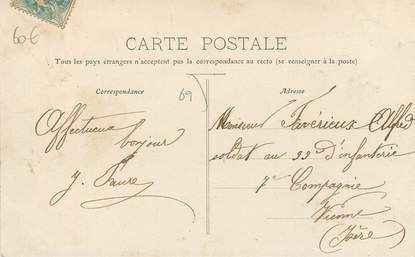 60€
CARTE POSTALE
Tous les pays étrangers n'acceptent pas la correspondance au recto (se renseigner à la poste)
Correspondance
69
Adresse
Affectueux
bonjour
J. Faure
Monsieur Favérieux Alfred
soldat au 99e d'infanterie
7e Compagnie
Vienne
(Isère)